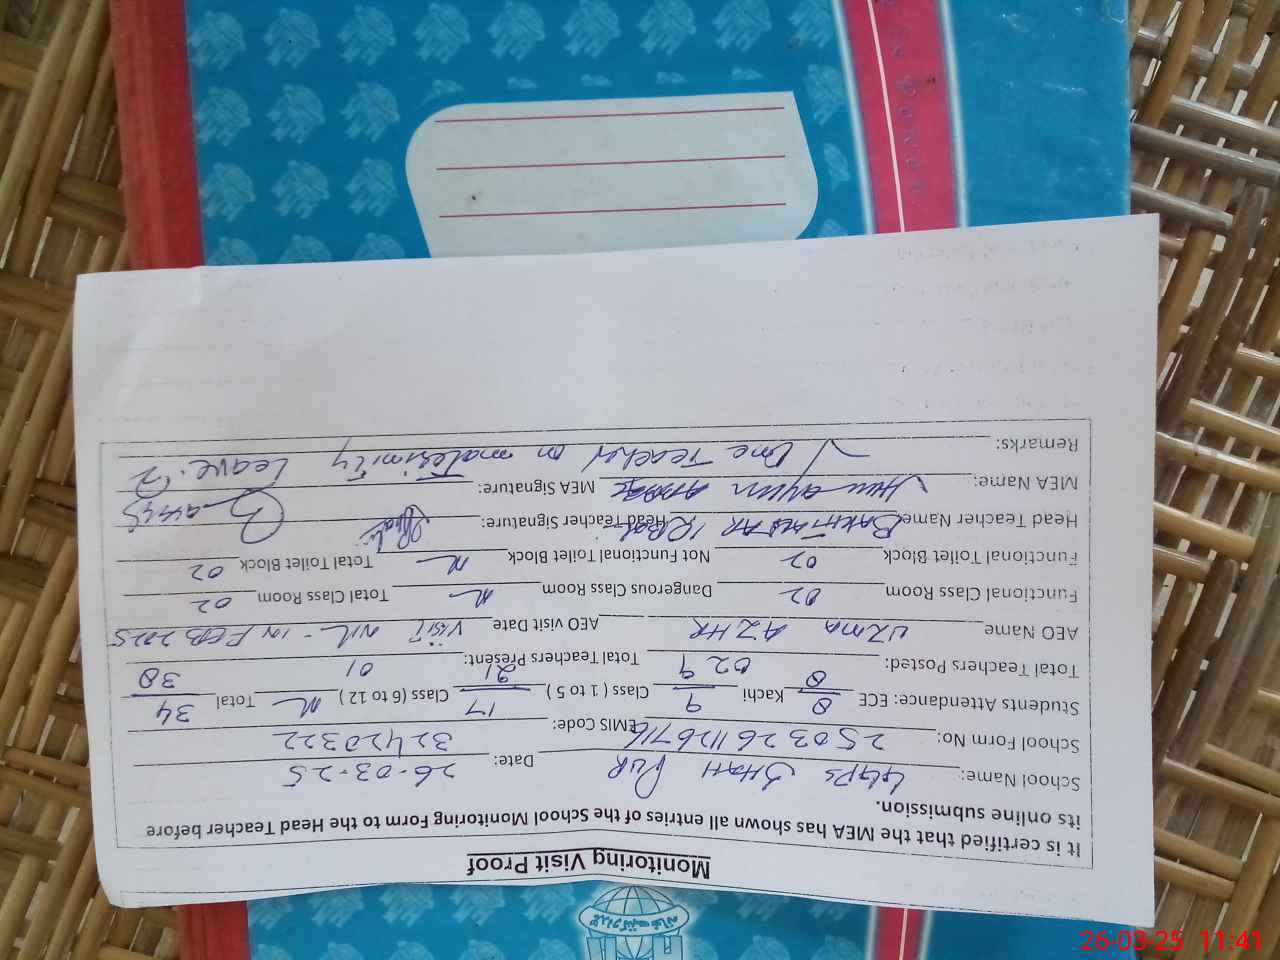 Monitoring Visit Proof
It is certified that the MEA has shown all entries of the School Monitoring Form to the Head Teacher before
its online submission.
School Name: GGPS SHAH PUR Date: 26-03-25
School Form No: 250326112671 EMIS Code: 32420322
Students Attendance: ECE 8/8 Kachi 9/9 Class ( 1 to 5 ) 17/21 Class (6 to 12 ) Total 34/38
Total Teachers Posted: 02 Total Teachers Present: 01
AEO Name UZMA AZHR AEO visit Date VISIT NIL - IN FEB 2025
Functional Class Room 02 Dangerous Class Room Total Class Room 02
Functional Toilet Block 02 Not Functional Toilet Block Total Toilet Block 02
Head Teacher Name Head Teacher Signature:
MEA Name: Humayun MEA Signature:
Remarks: One Teacher on maternity Leave.
26-03-25 11:41